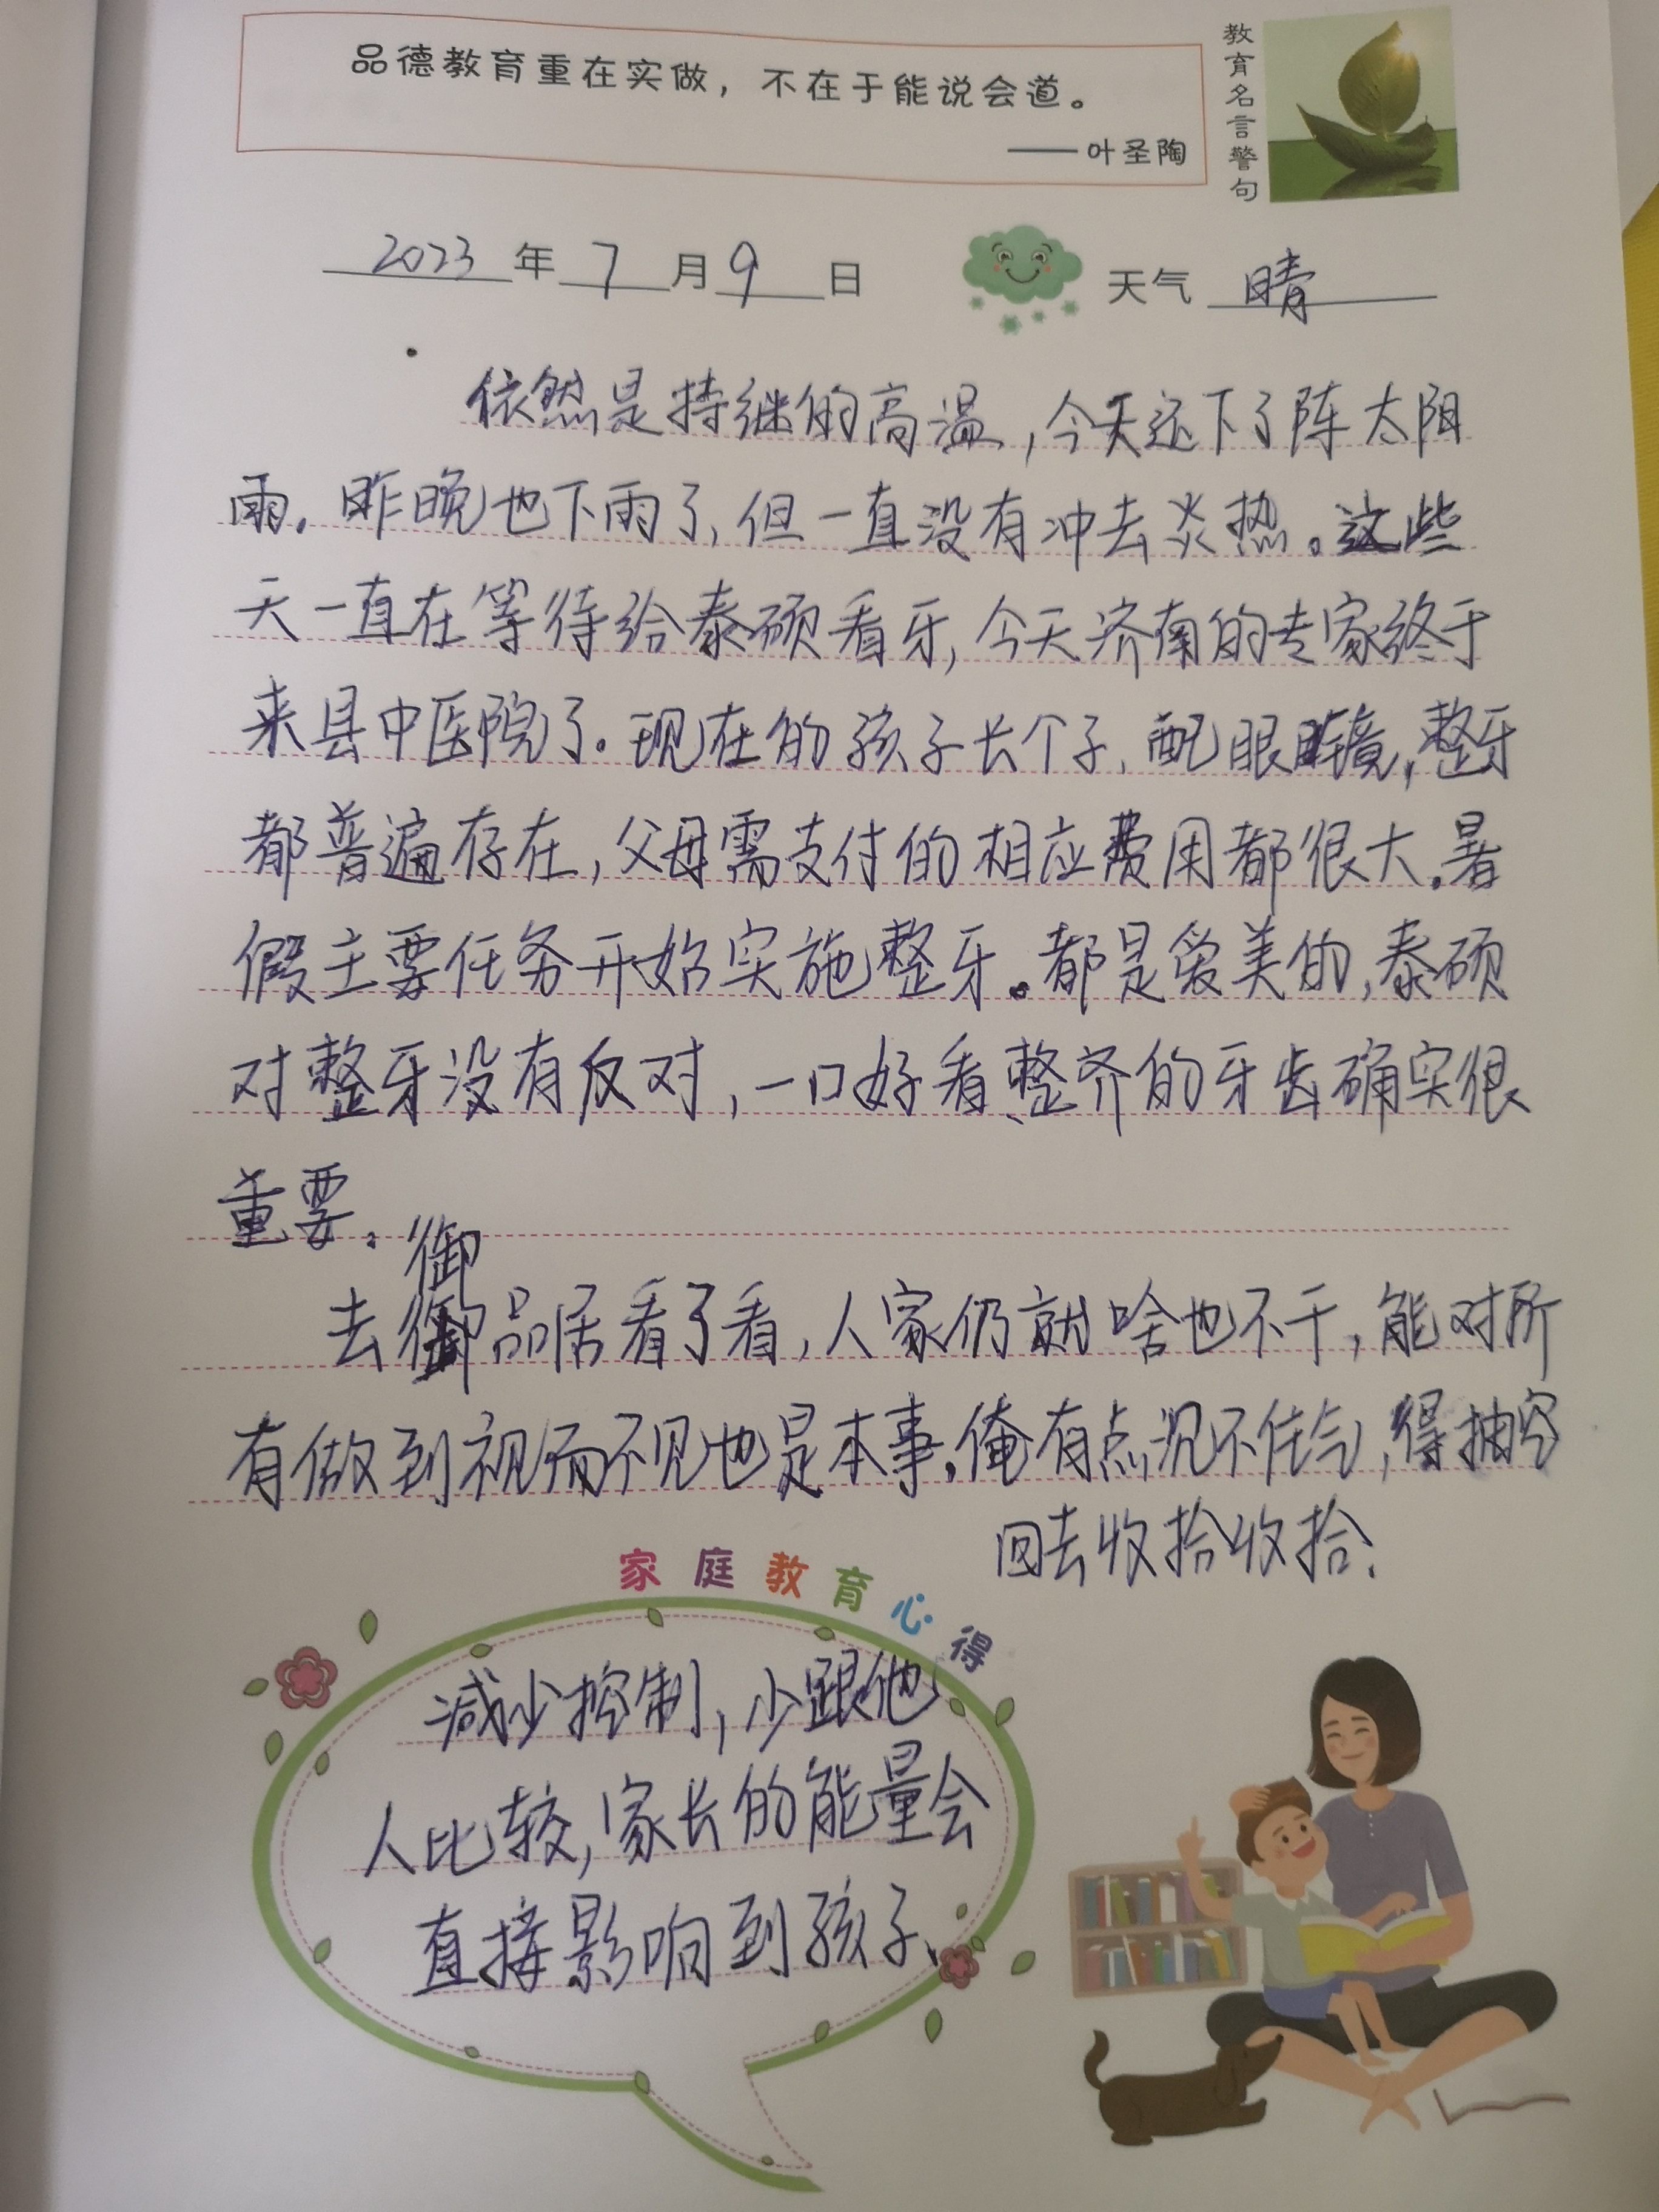 品德教育重在实做，不在于能说会道。
——叶圣陶
教育名言警句
2023年7月9日 天气 晴
依然是持继的高温，今天还下了阵太阳
雨。昨晚也下雨了，但一直没有冲去炎热。这些
天一直在等待给泰硕看牙，今天济南的专家终于
来县中医院了。现在的孩子长个子，配眼镜，整牙
都普遍存在，父母需支付的相应费用都很大。暑
假主要任务开始实施整牙。都是爱美的，泰硕
对整牙没有反对，一口好看整齐的牙齿确实很
重要。
御
去御品居看了看，人家仍就啥也不干，能对所
有做到视而不见也是本事，俺有点沉不住气，得抽空
回去收拾收拾！
家庭教育心得
减少控制，少跟他
人比较，家长的能量会
直接影响到孩子、